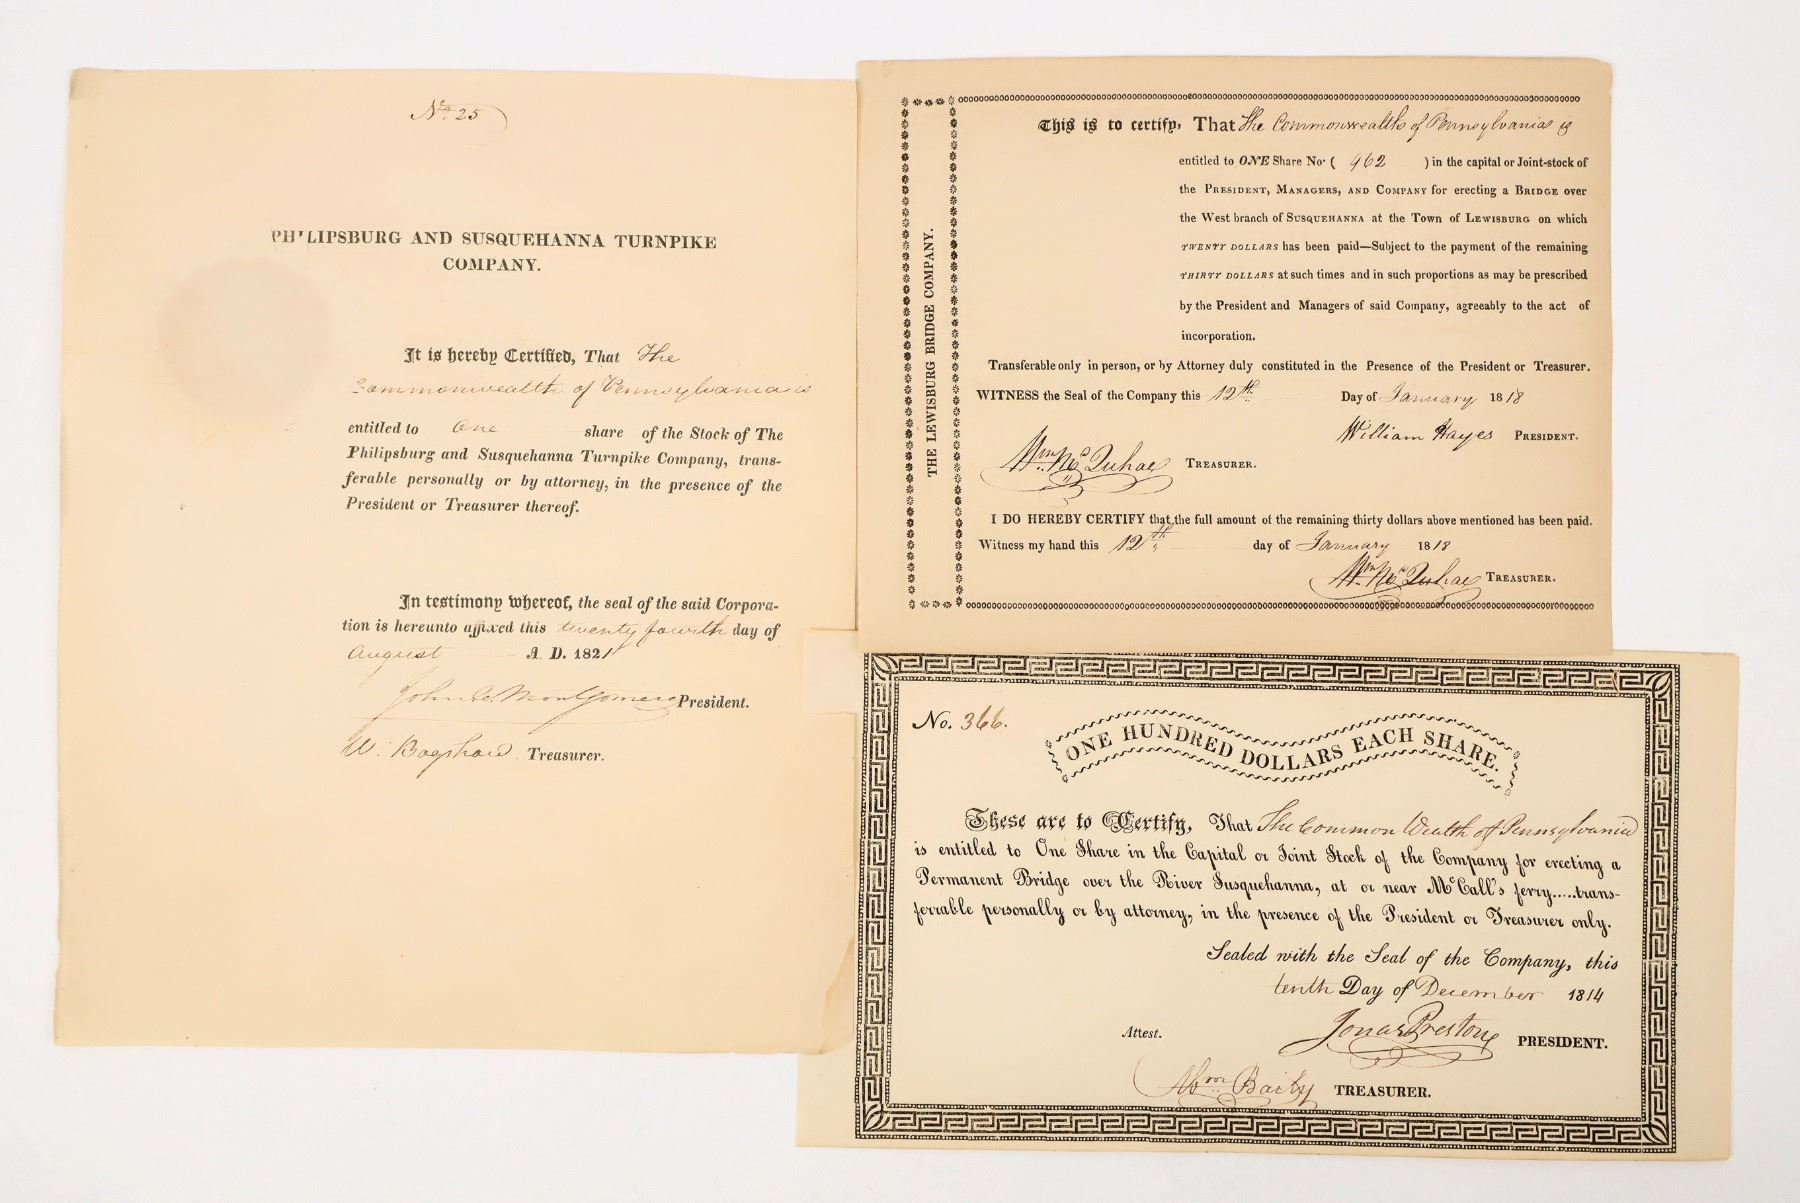 No. 25
PHILIPSBURG AND SUSQUEHANNA TURNPIKE
COMPANY.
It is hereby Certified, That The
Commonwealth of Pennsylvania is
entitled to One share of the Stock of The
Philipsburg and Susquehanna Turnpike Company, trans-
ferable personally or by attorney, in the presence of the
President or Treasurer thereof.
In testimony whereof, the seal of the said Corpora-
tion is hereunto affixed this twenty fourth day of
August A. D. 1821
John C. Montgomery President.
W. Treasurer.
THE LEWISBURG BRIDGE COMPANY.
This is to certify, That The Commonwealth of Pennsylvania is
entitled to ONE Share No. ( 962 ) in the capital or Joint-stock of
the PRESIDENT, MANAGERS, AND COMPANY for erecting a BRIDGE over
the West branch of SUSQUEHANNA at the Town of LEWISBURG on which
TWENTY DOLLARS has been paid—Subject to the payment of the remaining
THIRTY DOLLARS at such times and in such proportions as may be prescribed
by the President and Managers of said Company, agreeably to the act of
incorporation.
Transferable only in person, or by Attorney duly constituted in the Presence of the President or Treasurer.
WITNESS the Seal of the Company this 12th Day of January 1818
William Hayes PRESIDENT.
Wm. McQuhae TREASURER.
I DO HEREBY CERTIFY that the full amount of the remaining thirty dollars above mentioned has been paid.
Witness my hand this 12th day of January 1818
Wm. McQuhae TREASURER.
No. 366.
ONE HUNDRED DOLLARS EACH SHARE.
These are to Certify, That The Common Wealth of Pennsylvania
is entitled to One Share in the Capital or Joint Stock of the Company for erecting a
Permanent Bridge over the River Susquehanna, at or near McCall's ferry.....trans-
ferrable personally or by attorney, in the presence of the President or Treasurer only.
Sealed with the Seal of the Company, this
tenth Day of December 1814
Jonas Preston PRESIDENT.
Attest.
Wm Baily TREASURER.